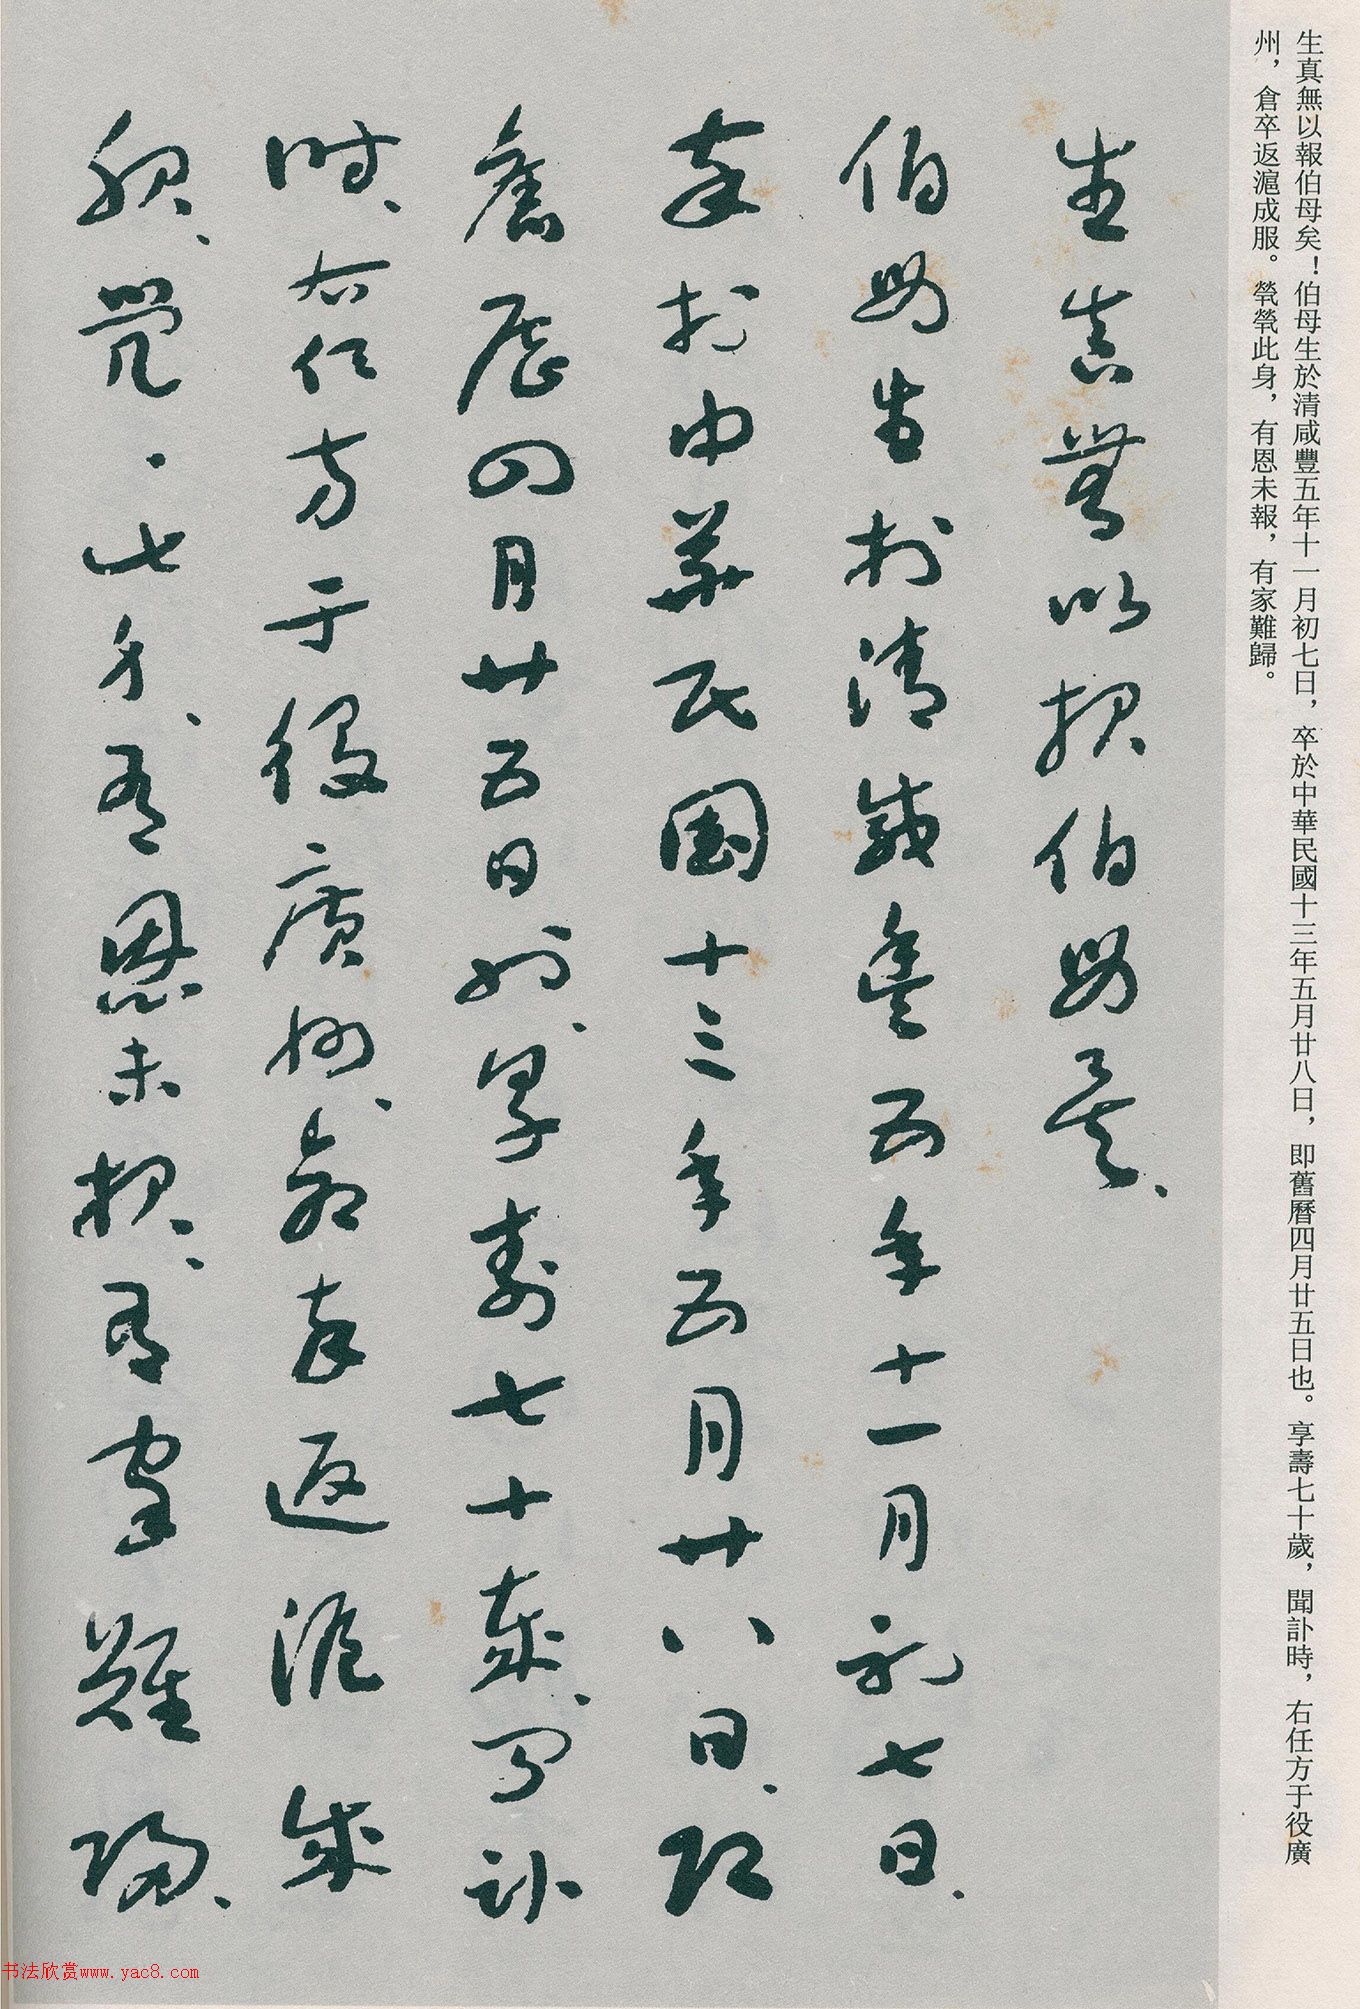 生真無以報伯母矣！伯母生於清咸豐五年十一月初七日，卒於中華民國十三年五月廿八日，即舊曆四月廿五日也。享壽七十歲，聞訃時，右任方于役廣
州，倉卒返滬成服。煢煢此身，有恩未報，有家難歸。
生真無以報伯母矣、
伯母生於清咸豐五年十一月初七日、
卒於中華民國十三年五月廿八日、即
舊曆四月廿五日也、享壽七十歲、聞訃
時、右任方于役廣州、倉卒返滬成
服、煢、此身、有恩未報、有家難歸、
书法欣赏www.yac8.com